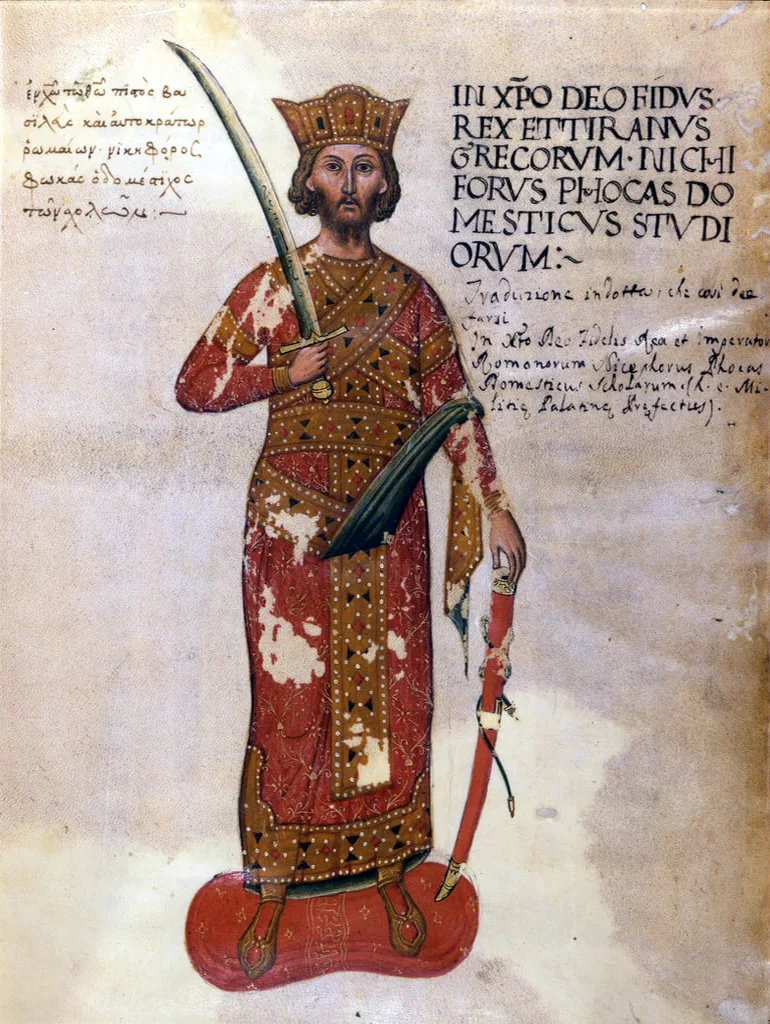 ἐν χῶ τῶ θῶ πιστὸς βα
σιλεὺς καὶ αυτοκράτωρ
ρωμαίων· νικηφόρος
φωκάς ὁ δομέστιχος
τῶν σχολῶν :~
IN XP̄O DEO FIDVS
REX ET TIRANVS
GRECORVM · NICHI
FORVS PHOCAS DO
MESTICVS STVDI
ORVM :~
Traduzione indotta, che così dee
farsi
In Xto Deo Fidelis Rex et Imperator
Romanorum Nicephorus Phocas
Domesticus Scholarum (h. e. Mi-
litię Palatinę Pręfectus).